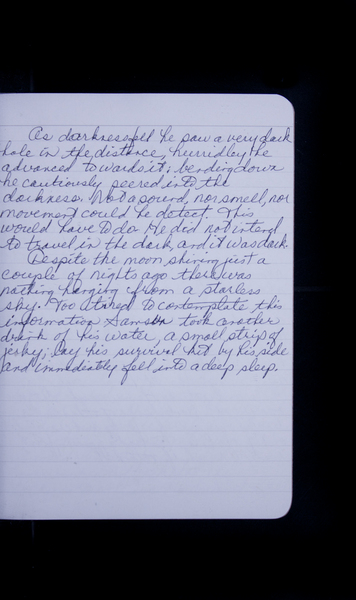 As darkness fell he saw a very dark
hole in the distance, hurridley he
advanced towards it; bending down
he cautiously peered into the
darkness. Not a sound, nor smell, nor
movement could he detect. This
would have to do. He did not intend
to travel in the dark, and it was dark.
Despite the moon shining just a
couple of nights ago there was
nothing hanging from a starless
sky. Too tired to contemplate this
information Samson took another
drink of his water, a small strip of
jerky; lay his survival kit by his side
and immediatly fell into a deep sleep.